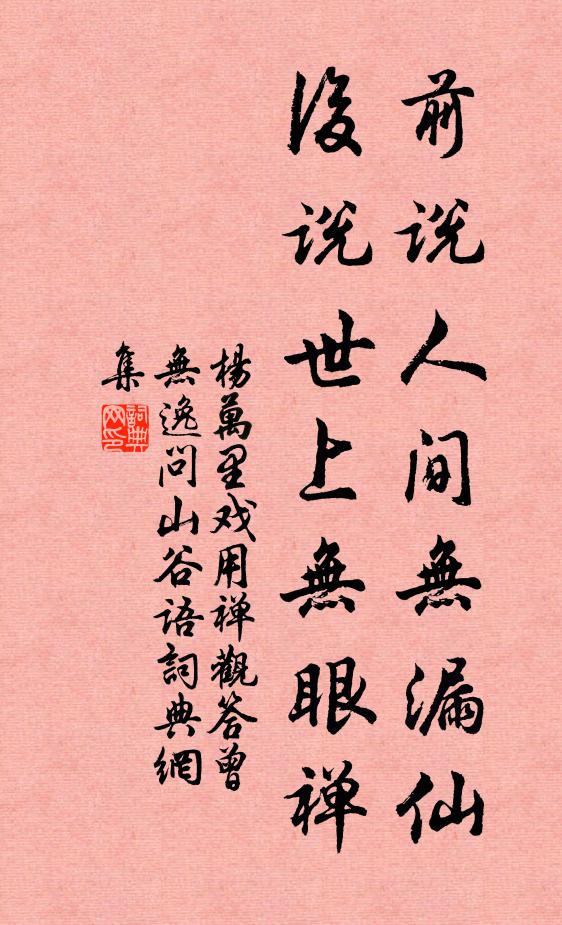 前説人间無漏仙
後説世上無眼禅
楊萬里戏用禅觀答曾
無逸问山谷语詞典網
集
詞典
网印